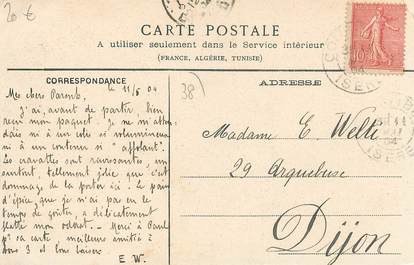 20 €
CARTE POSTALE
A utiliser seulement dans le Service intérieur
(FRANCE, ALGÉRIE, TUNISIE)
CORRESPONDANCE
ADRESSE
le 11/5 04
38)
Mes chers Parents.
J'ai, avant de partir, bien
reçu mon paquet. Je ne m'atten
dais ni à un colis si volumineux
ni à un contenu si "affolant".
Les cravattes sont ravissantes, un
surtout, tellement jolie que c'est
dommage de la porter ici. Le pain
d'épice, que je n'ai pas eu le
temps de goûter, a délicatement
flatté mon odorat. - Merci à Paul
pr sa carte, meilleures amitiés à
vous 3 et bons baisers
E. W.
Madame E. Welté
29 Arquebuse
Dijon
10
ISÈRE
04
ISÈRE